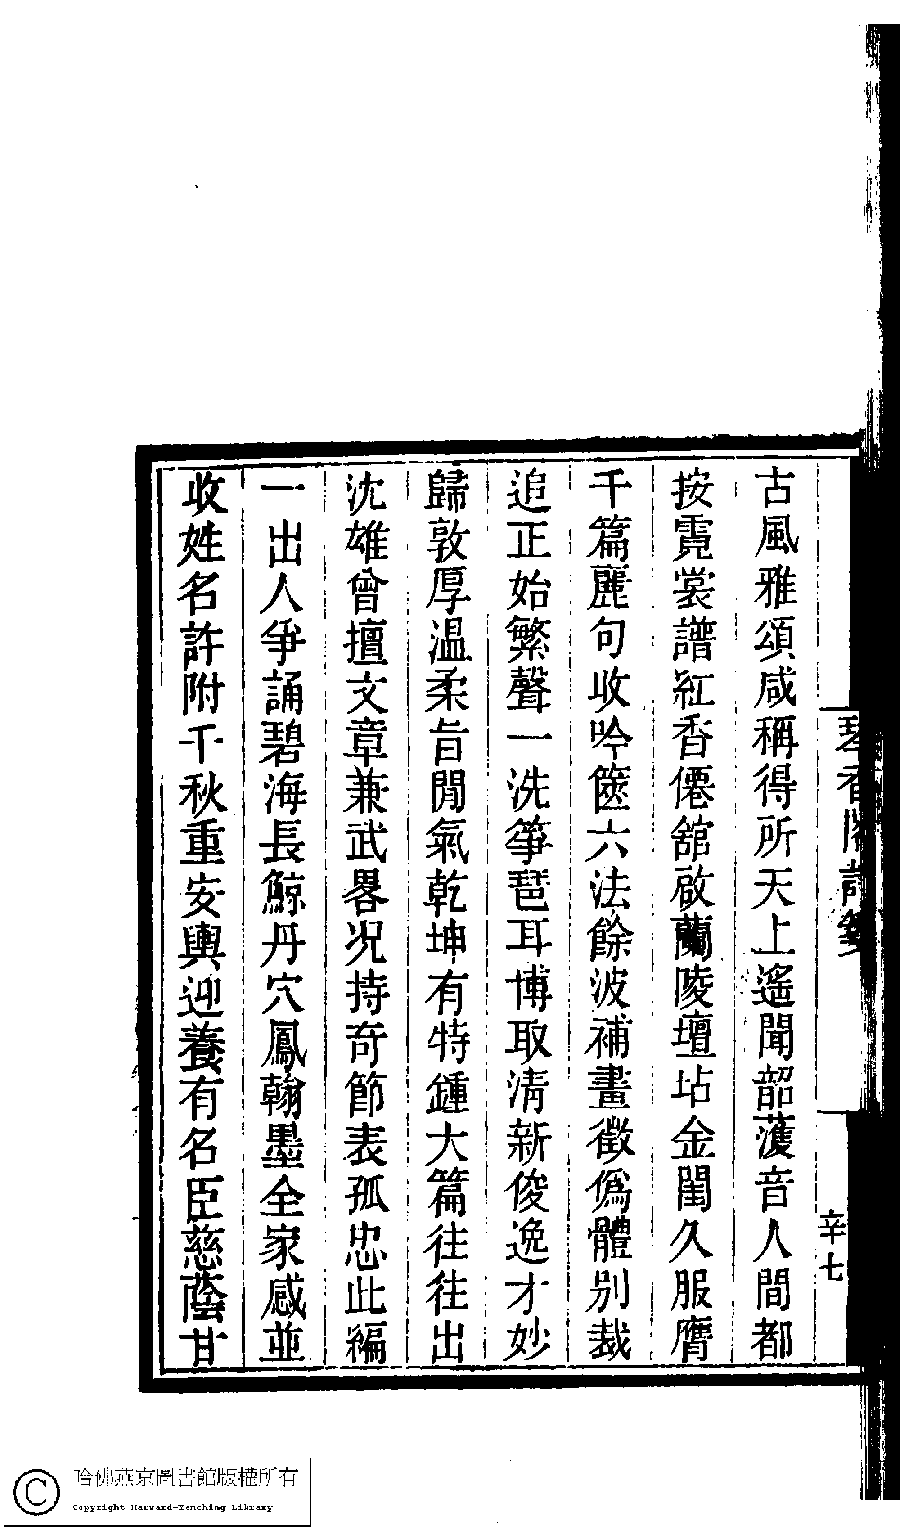 古風雅頌咸稱得所天上遙聞韶濩音人間都
按霓裳譜紅香僊舘啟蘭陵壇坫金閨久服膺
千篇麗句收吟篋六法餘波補畫徵僞體別裁
追正始繁聲一洗箏琶耳博取淸新俊逸才妙
歸敦厚溫柔旨閒氣乾坤有特鍾大篇往往出
沈雄曾擅文章兼武畧况持奇節表孤忠此編
一出人爭誦碧海長鯨丹穴鳳翰墨全家感並
收姓名許附千秋重安輿迎養有名臣慈蔭甘
辛七
哈佛燕京圖書館版權所有
Copyright Harvard-Yenching Library